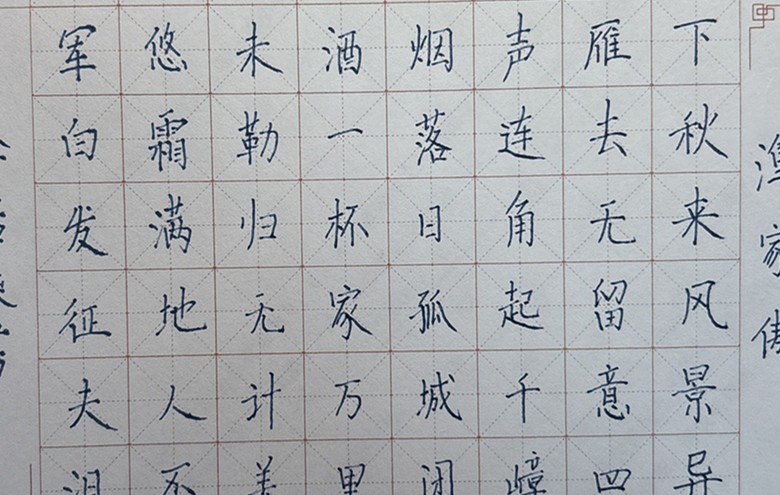 渔家傲
下秋来风景异
雁去无留意四
声连角起千嶂
烟落日孤城闭
酒一杯家万里
未勒归无计羌
悠霜满地人不
军白发征夫泪